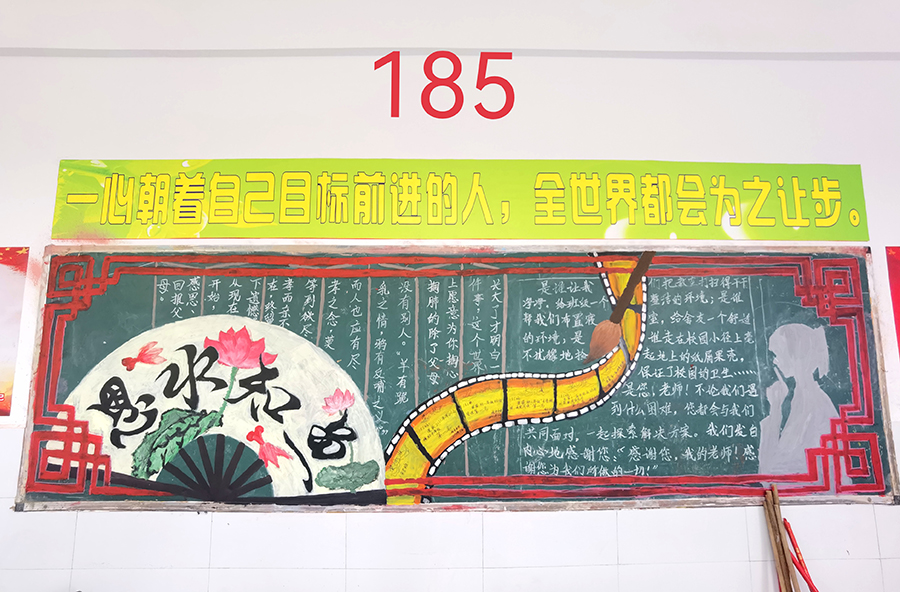 185
一心朝着自己目标前进的人，全世界都会为之让步。
长大了才明白
件事，这个世界
上愿意为你掏心
掏肺的除了父母
没有别人。“羊有跪
乳之情，鸦有反哺之
而人也应有尽
孝之念，莫
等到欲尽
孝而亲不
在，终留
下遗憾
从现在
开始
感恩、
回报父
母。
恩水志
是谁让我们把教室打扫得干干
净净，给班级一个整洁的环境；是谁
帮我们布置寝室，给舍友一个舒适
的环境；是谁走在校园小径上毫
不犹豫地拾起地上的纸屑果壳。
保证了校园的卫生……
是您，老师！不论我们遇
到什么困难，您都会与我们
共同面对，一起探索解决方案。我们发自
内心地感谢您：“感谢您，我的老师！感
谢您为我们所做的一切！”